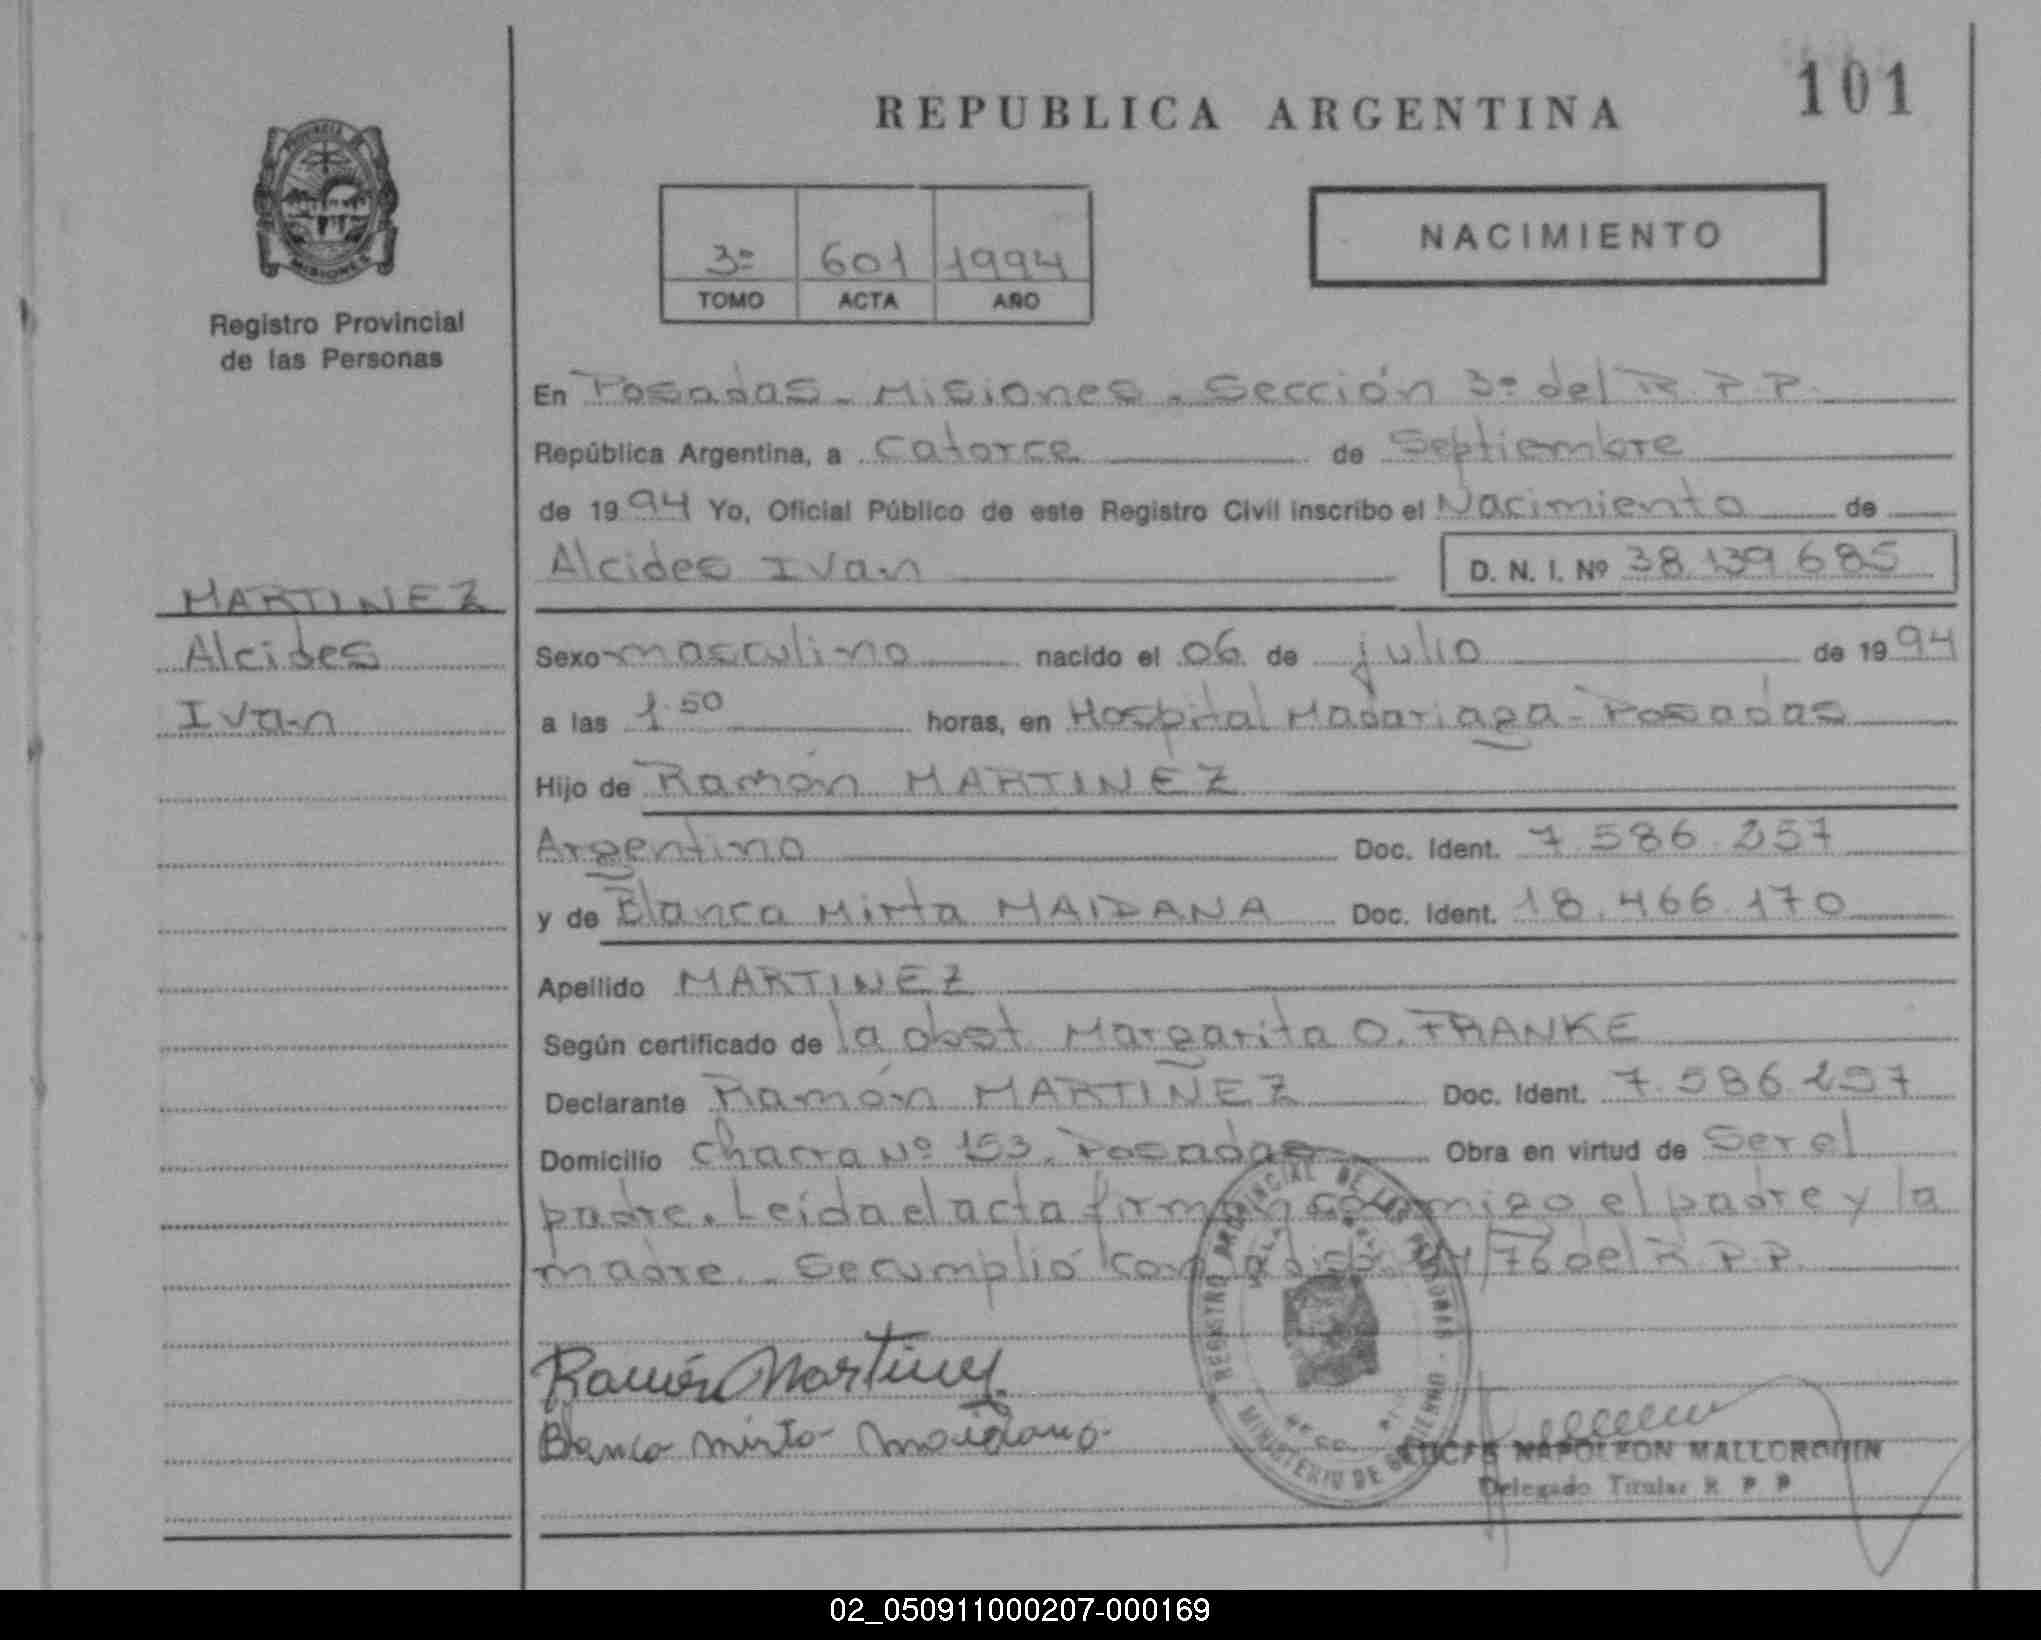 101
REPUBLICA ARGENTINA
PROVINCIA
MISIONES
Registro Provincial
de las Personas
3º 601 1994
TOMO ACTA AÑO
NACIMIENTO
En Posadas - Misiones. Sección 3º del R.P.P.
República Argentina, a catorce de Septiembre
de 1994 Yo, Oficial Público de este Registro Civil inscribo el Nacimiento de
Alcides Ivan D. N. I. Nº 38.139.685
MARTINEZ
Alcides
Ivan
Sexo masculino nacido el 06 de julio de 1994
a las 1.50 horas, en Hospital Madariaga - Posadas
Hijo de Ramón MARTINEZ
Argentino Doc. Ident. 7.586.257
y de Blanca Mirta MAIDANA Doc. Ident. 18.466.170
Apellido MARTINEZ
Según certificado de la obst Margarita O. FRANKE
Declarante Ramón MARTINEZ Doc. Ident. 7.586.257
Domicilio Chacra Nº 153. Posadas Obra en virtud de Ser el
padre. Leída el acta firman conmigo el padre y la
madre. Se cumplió con la disp. /76 del R.P.P.
REGISTRO PROVINCIAL DE LAS PERSONAS
MINISTERIO DE GOBIERNO
Ramón Martinez
Blanca mirta maidana
LUCAS NAPOLEON MALLORQUIN
Delegado Titular R P P
02_050911000207-000169